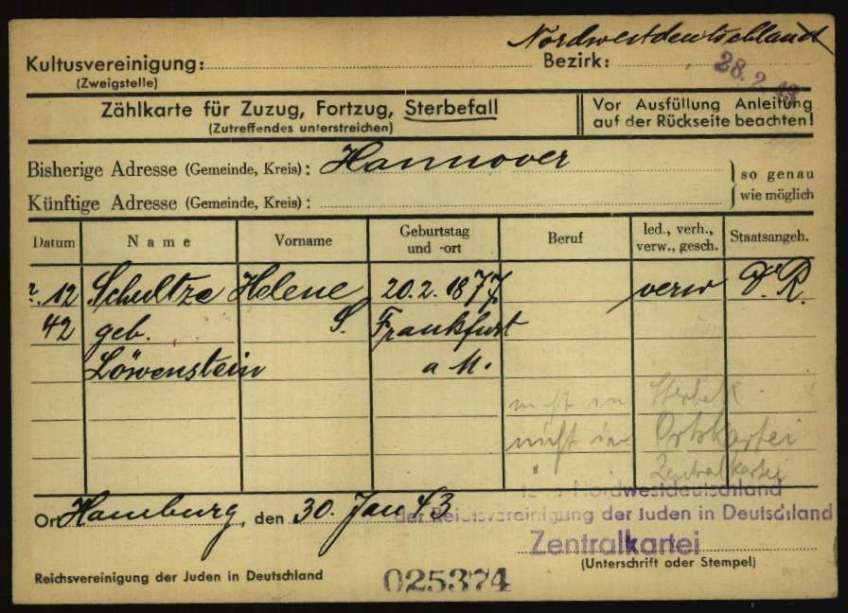 Nordwestdeutschland
Kultusvereinigung: Bezirk:
(Zweigstelle)
28. 2. 43
Zählkarte für Zuzug, Fortzug, Sterbefall
(Zutreffendes unterstreichen)
Vor Ausfüllung Anleitung
auf der Rückseite beachten!
Bisherige Adresse (Gemeinde, Kreis): Hannover
Künftige Adresse (Gemeinde, Kreis):
so genau
wie möglich
Datum Name Vorname Geburtstag und -ort Beruf led., verh., verw., gesch. Staatsangeh.
12 Schultze Helene 20.2.1877. verw D.R.
42 geb. S. Frankfurt
Löwenstein a M.
nicht in Sterbek.
nicht in Ortskartei
" " Zentralkartei
Nordwestdeutschland
Ort Hamburg, den 30. Jan 43
der Reichsvereinigung der Juden in Deutschland
Zentralkartei
(Unterschrift oder Stempel)
Reichsvereinigung der Juden in Deutschland
025374